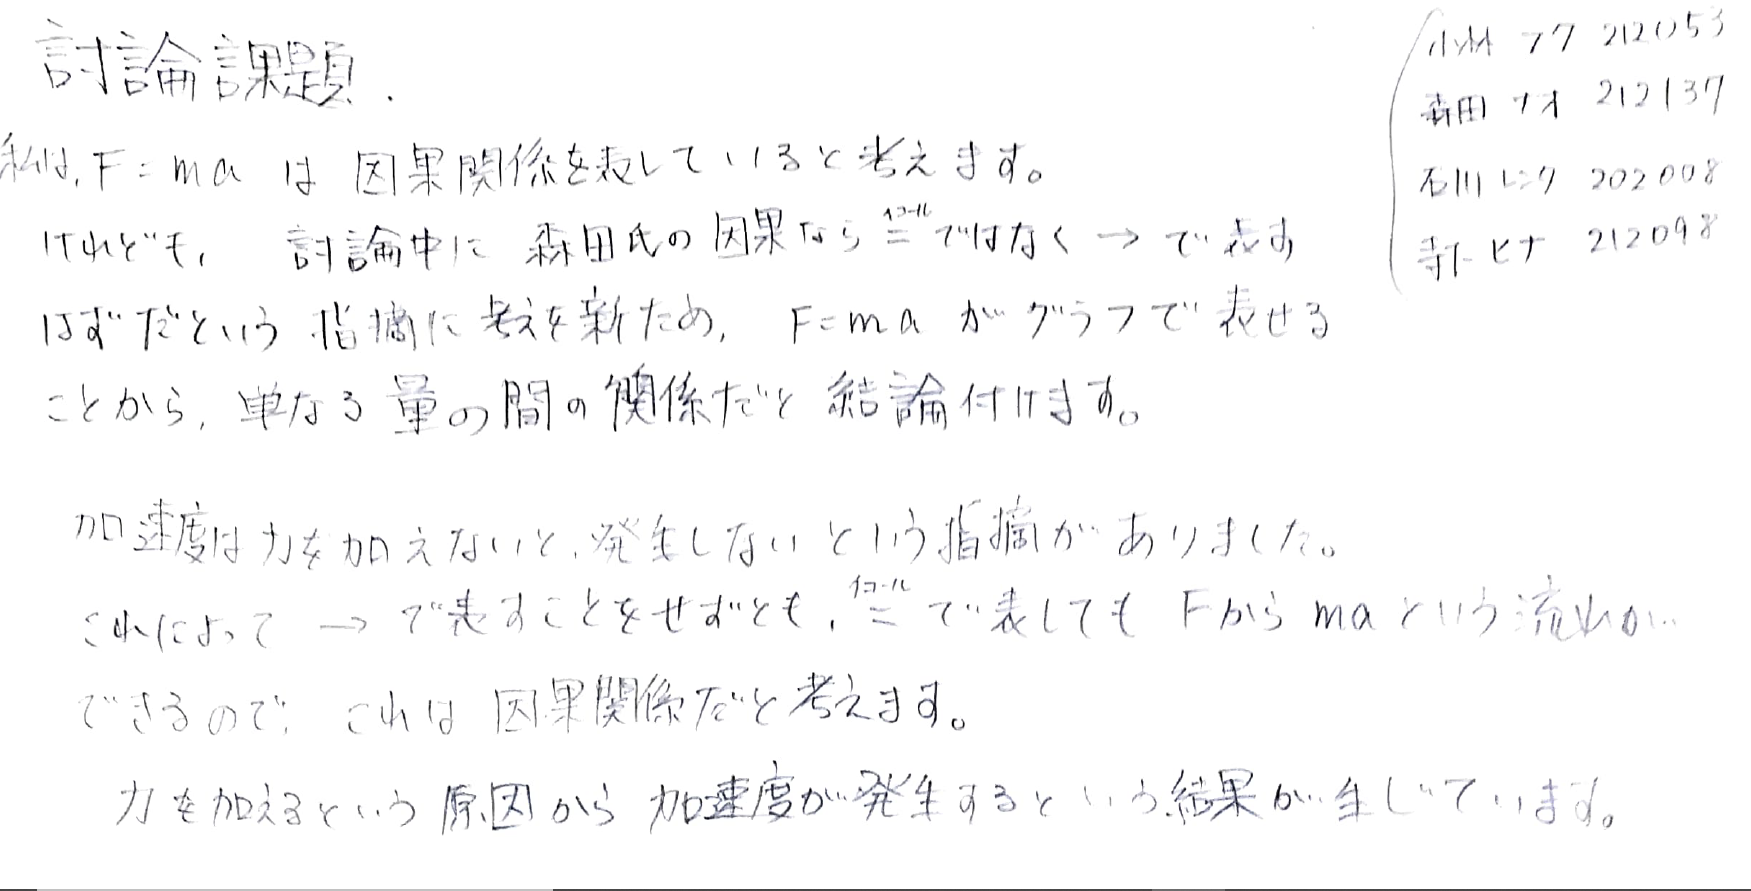 討論課題.
小林 フク 212053
森田 ナオ 212137
石川 レンク 202008
寺下 ヒナ 212098
私は、F=ma は 因果関係を表していると考えます。
けれども、討論中に 森田氏の因果なら =(イコール)ではなく → で表す
はずだという 指摘に考えを新ため、F=ma が グラフで表せる
ことから、単なる量の間の関係だと 結論付けます。
加速度は力を加えないと、発生しないという指摘がありました。
これによって → で表すことをせずとも、=(イコール)で表しても Fから maという流れが
できるので、これは 因果関係だと考えます。
力を加えるという原因から加速度が発生するという結果が生じています。